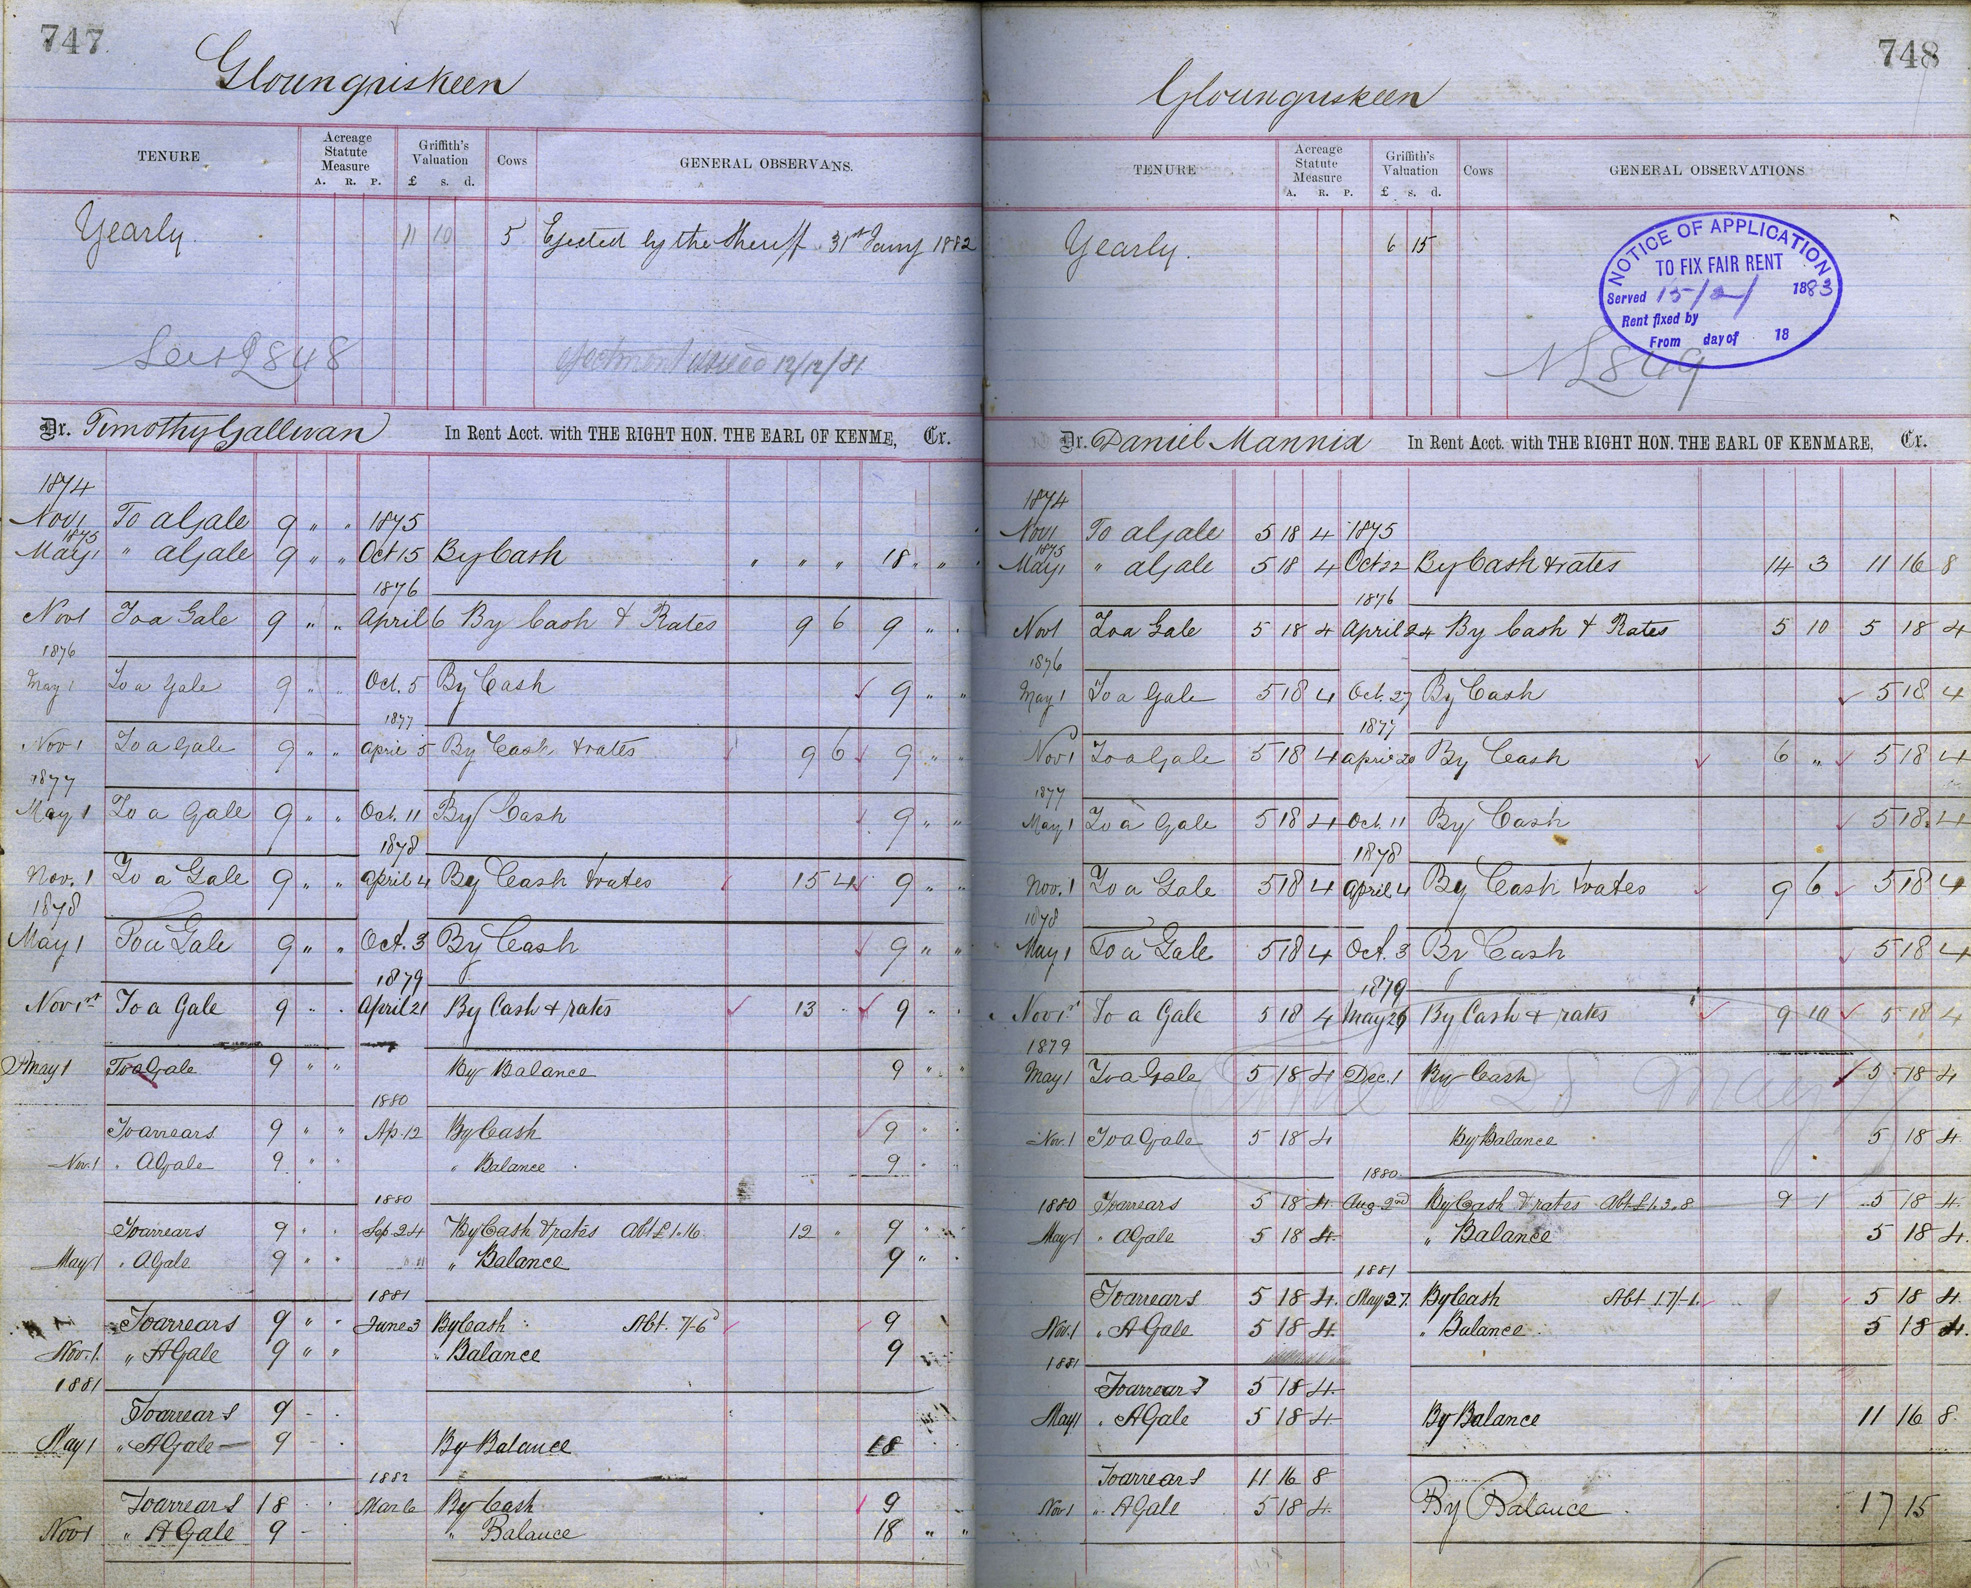 747
Gloungriskeen
TENURE
Acreage
Statute
Measure
A. R. P.
Griffith's
Valuation
£ s. d.
Cows
GENERAL OBSERVANS.
Yearly. 11 10 5 Ejected by the Sheriff 31st Jany 1882
848
Ejectment issued 12/12/81
Dr. Timothy Gallivan In Rent Acct. with THE RIGHT HON. THE EARL OF KENME, Cr.
1874
Nov 1 To a Gale 9 " " 1875
1875
May 1 " a Gale 9 " " Oct 15 By Cash " " " 18 " "
1876
Nov 1 To a Gale 9 " " April 6 By Cash & Rates 9 6 9 " "
1876
May 1 To a Gale 9 " " Oct. 5 By Cash 9 " "
1877
Nov 1 To a Gale 9 " " April 5 By Cash & rates 9 6 9 " "
1877
May 1 To a Gale 9 " " Oct. 11 By Cash 9 " "
1878
Nov. 1 To a Gale 9 " " April 4 By Cash & rates 15 4 9 " "
1878
May 1 To a Gale 9 " " Oct. 3 By Cash 9 " "
1879
Nov 1st To a Gale 9 " " April 21 By Cash & rates 13 " 9 " "
May 1 To a Gale 9 " " By Balance 9 " "
1880
To arrears 9 " " Ap. 12 By Cash 9 "
Nov. 1 " A Gale 9 " " " Balance 9 "
1880
To arrears 9 " " Sep 24 By Cash & rates Abt £1.16 12 " 9 " "
May 1 " A Gale 9 " " " Balance 9 "
1881
To arrears 9 " " June 3 By Cash Abt. 7/-6d 9
Nov. 1. " A Gale 9 " " " Balance 9
1881
To arrears 9 - -
May 1 " A Gale 9 - - By Balance 18
1882
To arrears 18 - - Mar 6 By Cash 9
Nov 1 " A Gale 9 - " Balance 18 " "
748
Gloungriskeen
TENURE
Acreage
Statute
Measure
A. R. P.
Griffith's
Valuation
£ s. d.
Cows
GENERAL OBSERVATIONS
Yearly. 6 15
NOTICE OF APPLICATION
TO FIX FAIR RENT
Served 15/2/ 1883
Rent fixed by
From day of 18
849
Dr. Daniel Mannix In Rent Acct. with THE RIGHT HON. THE EARL OF KENMARE, Cr.
1874
Nov 1 To a Gale 5 18 4 1875
1875
May 1 " a Gale 5 18 4 Oct 22 By Cash & rates 14 3 11 16 8
1876
Nov 1 To a Gale 5 18 4 April 24 By Cash & Rates 5 10 5 18 4
1876
May 1 To a Gale 5 18 4 Oct. 27 By Cash 5 18 4
1877
Nov 1 To a Gale 5 18 4 April 20 By Cash 6 " 5 18 4
1877
May 1 To a Gale 5 18 4 Oct. 11 By Cash 5 18 4
1878
Nov. 1 To a Gale 5 18 4 April 4 By Cash & rates 9 6 5 18 4
1878
May 1 To a Gale 5 18 4 Oct. 3 By Cash 5 18 4
1879
Nov 1st To a Gale 5 18 4 May 26 By Cash & rates 9 10 5 18 4
1879
May 1 To a Gale 5 18 4 Dec. 1 By Cash 5 18 4
Nov. 1 To a Gale 5 18 4 By Balance 5 18 4
1880
1880 To arrears 5 18 4 Aug 2nd By Cash & rates Abt £1.3.8 9 1 5 18 4
May 1 " A Gale 5 18 4 " Balance 5 18 4
1881
To arrears 5 18 4. May 27. By Cash Abt 17/-1. 5 18 4
Nov. 1 " A Gale 5 18 4. " Balance 5 18 4.
1881
To arrears 5 18 4
May 1 " A Gale 5 18 4 By Balance 11 16 8
To arrears 11 16 8
Nov 1 " A Gale 5 18 4. By Balance 17 15